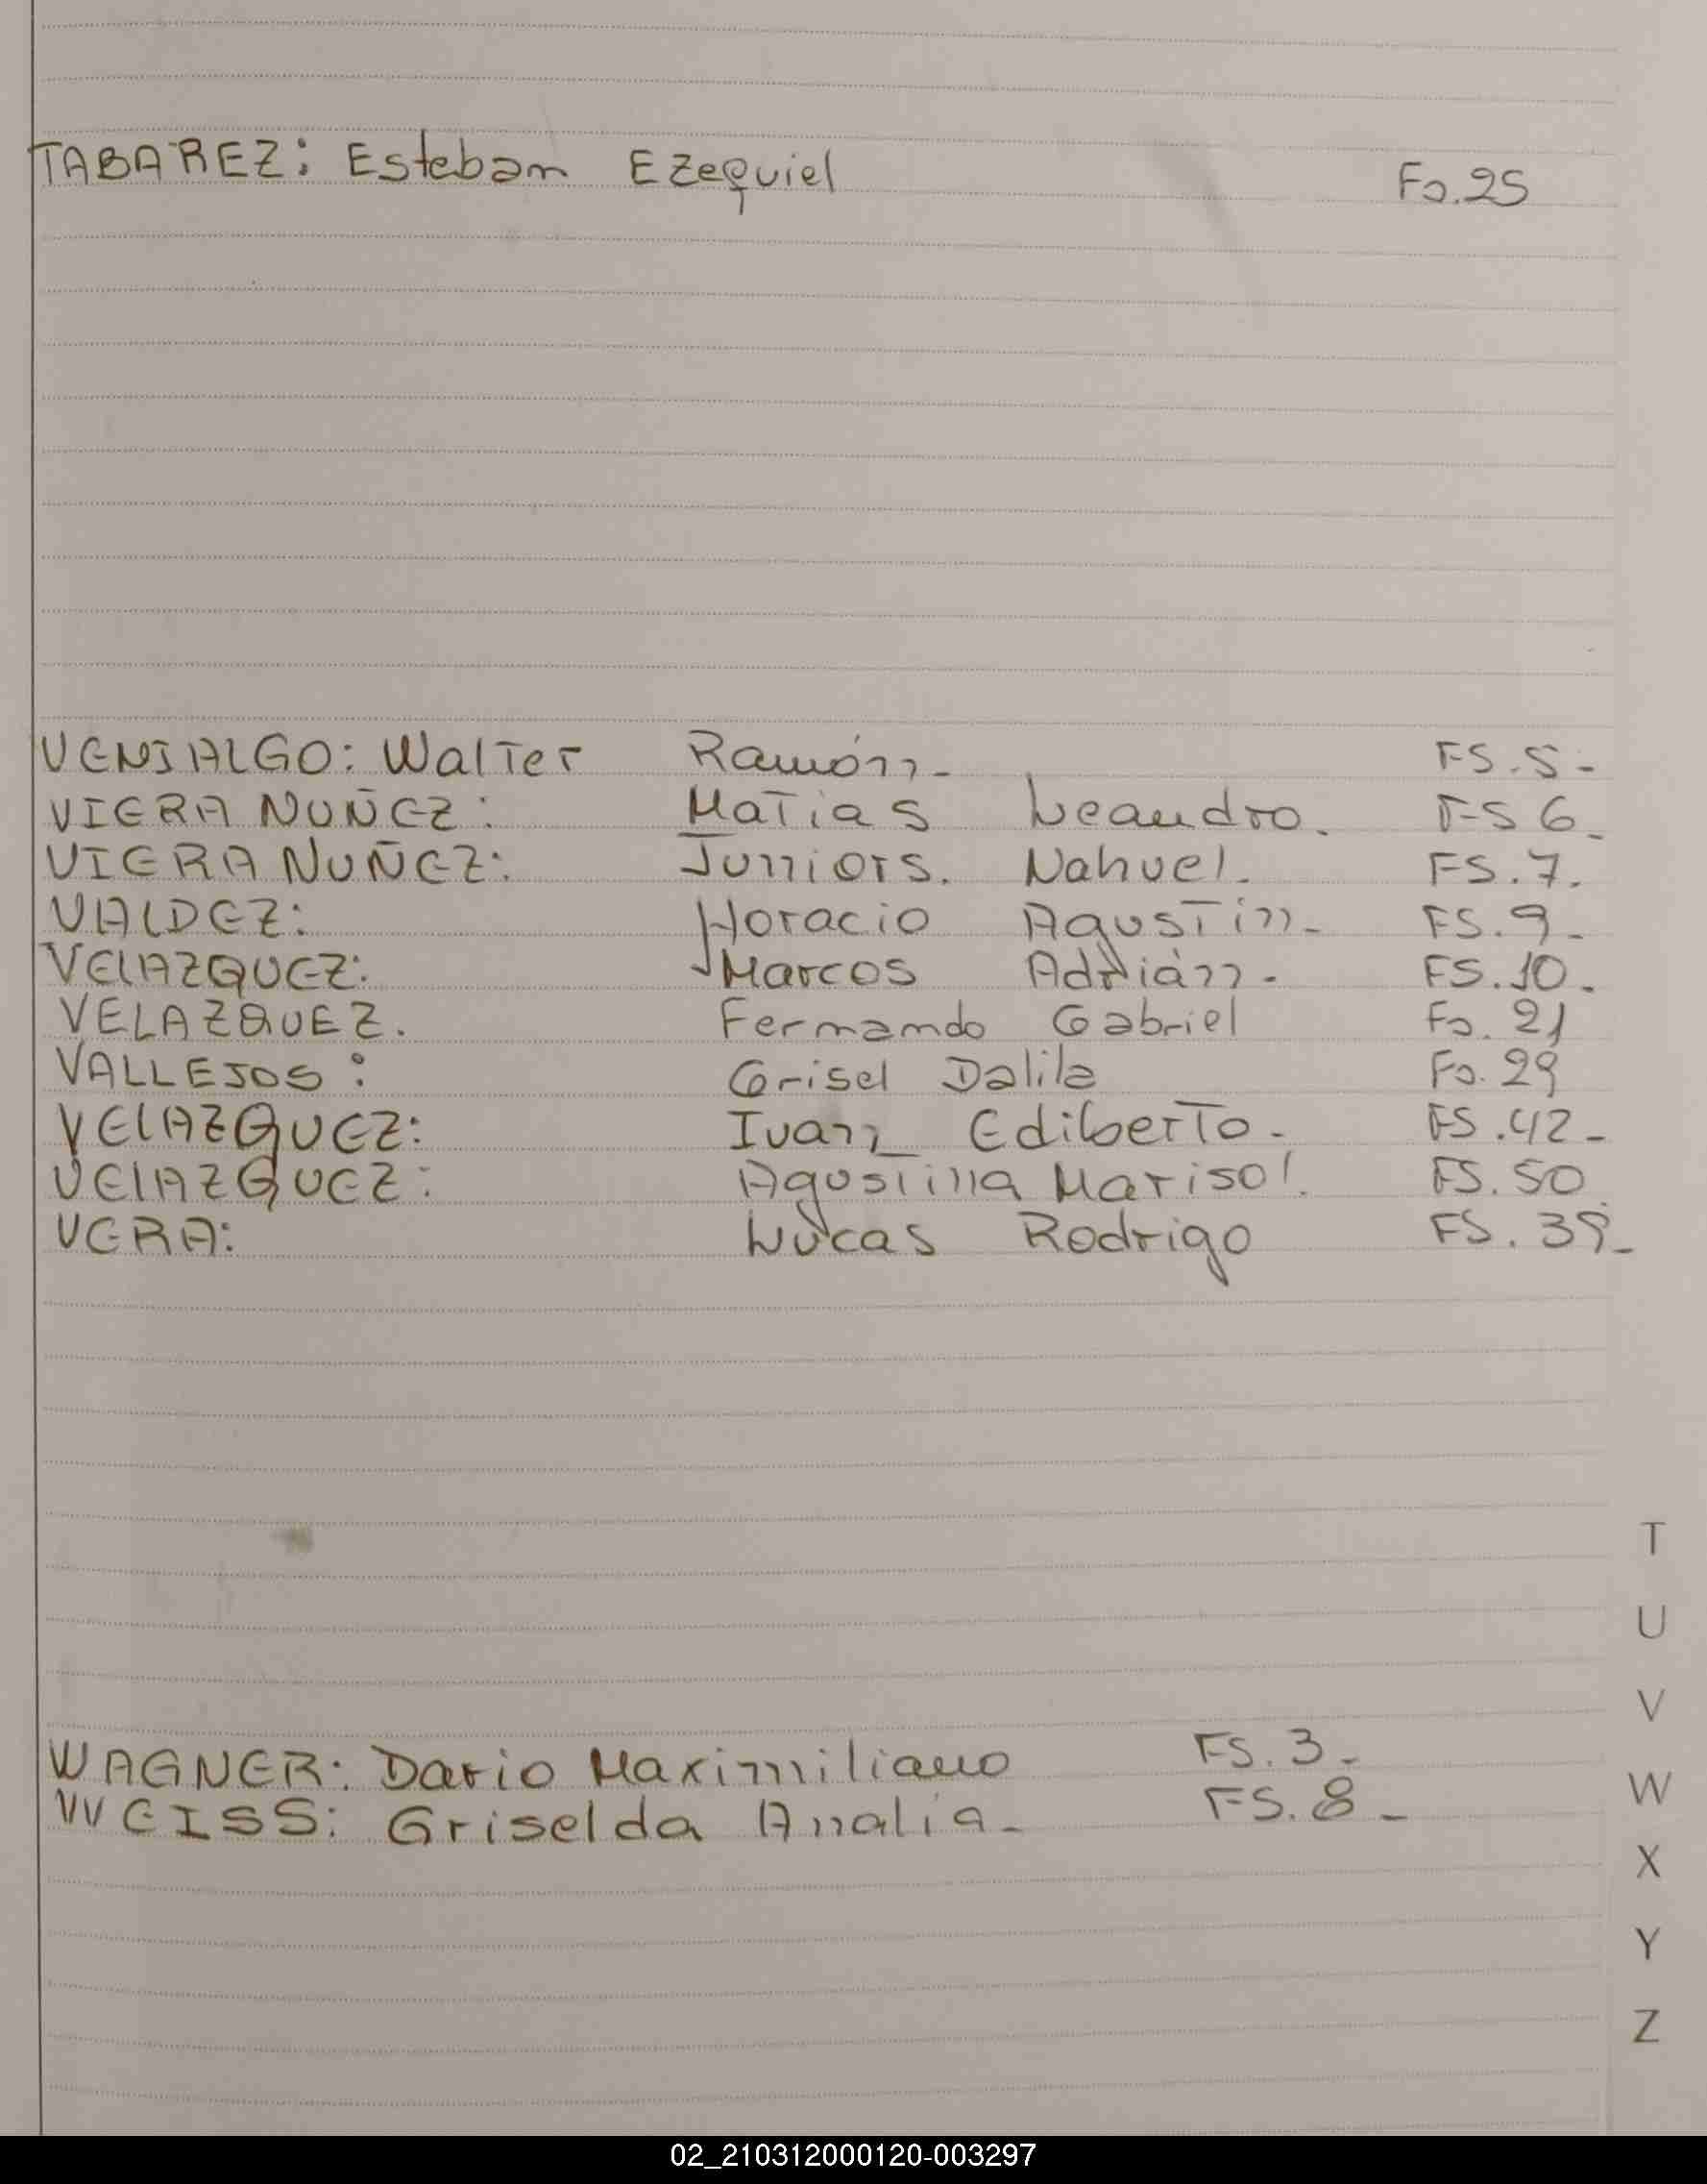 TABAREZ: Esteban Ezequiel Fo.25
VENIALGO: Walter Ramón- FS.5-
VIERA NUÑEZ: Matias Leandro. FS 6-
VIERA NUÑEZ: Juniors. Nahuel. FS.7.
VALDEZ: Horacio Agustin- FS.9-
VELAZQUEZ: Marcos Adrián- FS.10.
VELAZQUEZ. Fernando Gabriel Fo. 21
VALLEJOS: Grisel Dalila Fo. 29
VELAZQUEZ: Ivan Ediberto- FS.42-
VELAZQUEZ: Agustina Marisol. FS.50
VERA: Lucas Rodrigo FS. 39-
T
U
V
WAGNER: Dario Maximiliano FS.3-
W
WEISS: Griselda Analia- FS.8-
X
Y
Z
02_210312000120-003297